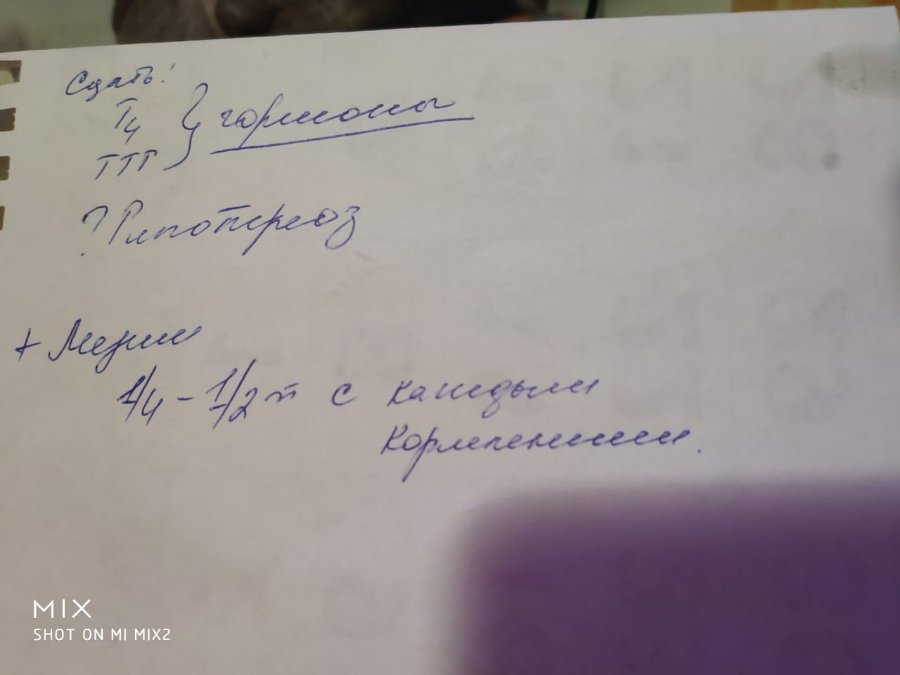 Сдать!
Т4 } гормоны
ТТГ
? Гипотереоз
+ Мезим
1/4 - 1/2 т с каждым
кормлением.
MIX
SHOT ON MI MIX2